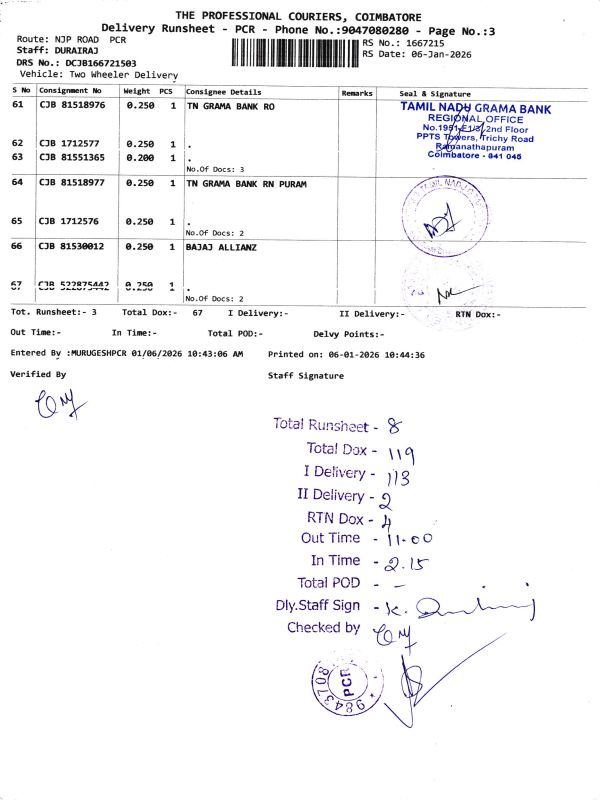 THE PROFESSIONAL COURIERS, COIMBATORE
Delivery Runsheet - PCR - Phone No.:9047080280 - Page No.:3
Route: NJP ROAD PCR
RS No.: 1667215
Staff: DURAIRAJ
RS Date: 06-Jan-2026
DRS No.: DCJB166721503
Vehicle: Two Wheeler Delivery
S No Consignment No Weight PCS Consignee Details Remarks Seal & Signature
61 CJB 81518976 0.250 1 TN GRAMA BANK RO
TAMIL NADU GRAMA BANK
REGIONAL OFFICE
No.1951-E1/3, 2nd Floor
PPTS Towers, Trichy Road
Ramanathapuram
Coimbatore - 641 045
62 CJB 1712577 0.250 1 .
63 CJB 81551365 0.200 1 .
No.Of Docs: 3
64 CJB 81518977 0.250 1 TN GRAMA BANK RN PURAM
65 CJB 1712576 0.250 1 .
No.Of Docs: 2
66 CJB 81530012 0.250 1 BAJAJ ALLIANZ
67 CJB 522875442 0.250 1 .
No.Of Docs: 2
Tot. Runsheet:- 3 Total Dox:- 67 I Delivery:- II Delivery:- RTN Dox:-
Out Time:- In Time:- Total POD:- Delvy Points:-
Entered By :MURUGESHPCR 01/06/2026 10:43:06 AM Printed on: 06-01-2026 10:44:36
Verified By Staff Signature
Total Runsheet - 8
Total Dox - 119
I Delivery - 113
II Delivery - 2
RTN Dox - 4
Out Time - 11.00
In Time - 2.15
Total POD - -
Dly.Staff Sign - K.
Checked by
PCR
9843708